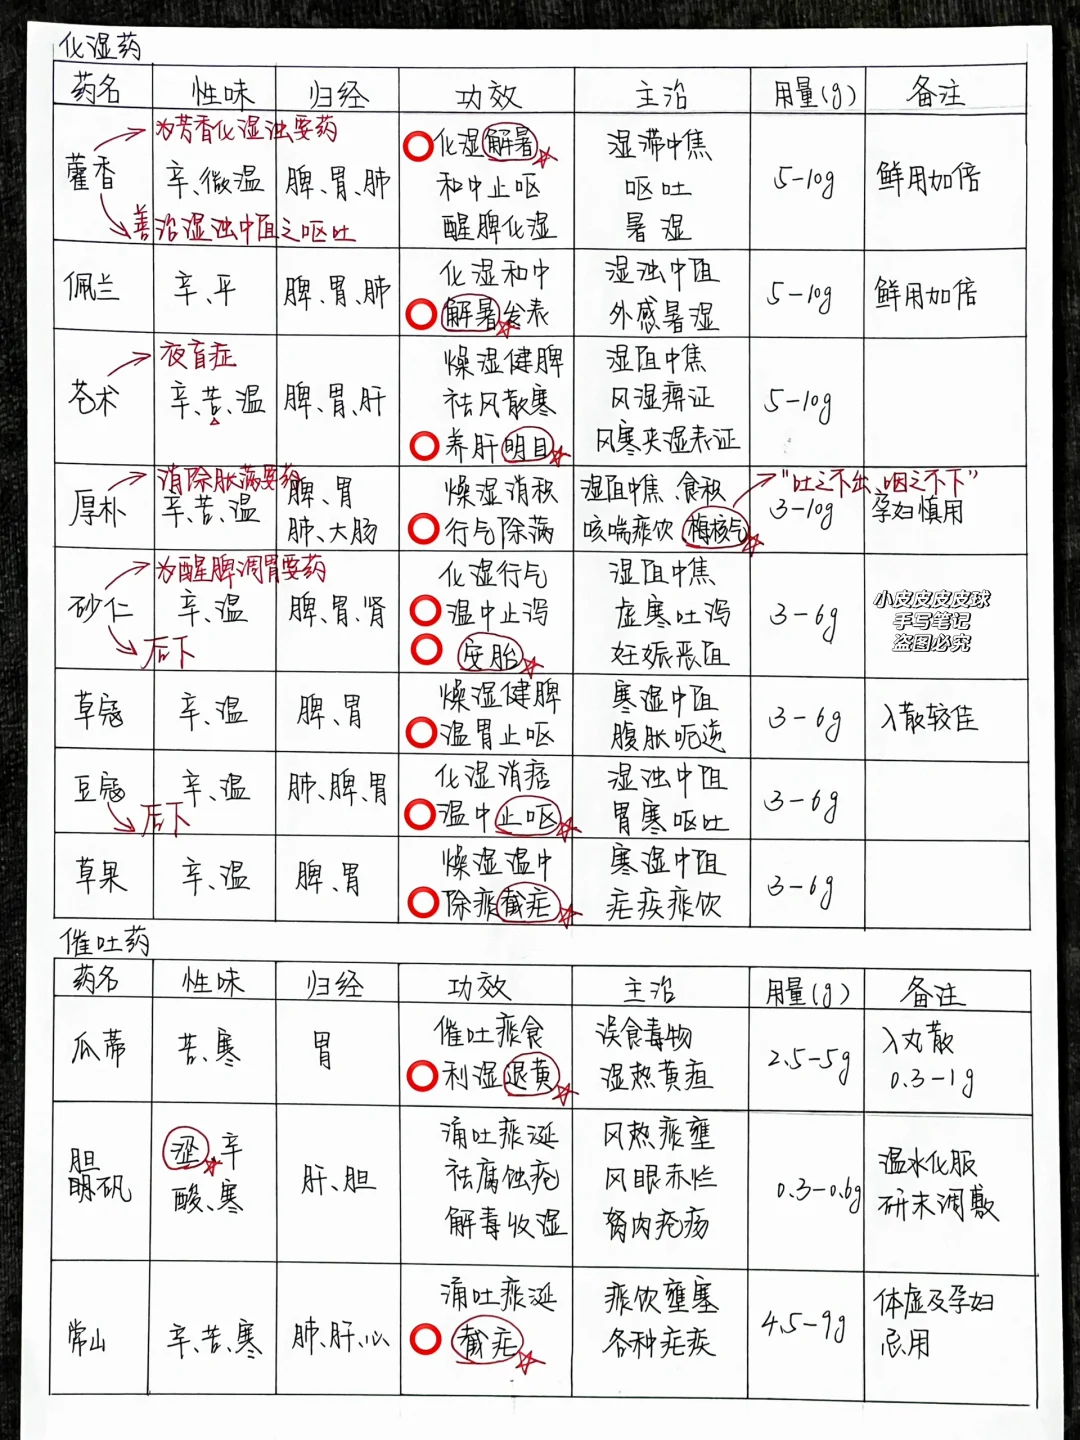 化湿药
药名 性味 归经 功效 主治 用量(g) 备注
为芳香化湿浊要药
藿香 辛、微温 脾、胃、肺 化湿解暑 湿滞中焦 5-10g 鲜用加倍
和中止呕 呕吐
善治湿浊中阻之呕吐 醒脾化湿 暑湿
佩兰 辛、平 脾、胃、肺 化湿和中 湿浊中阻 5-10g 鲜用加倍
解暑发表 外感暑湿
夜盲症 燥湿健脾 湿阻中焦
苍术 辛、苦、温 脾、胃、肝 祛风散寒 风湿痹证 5-10g
养肝明目 风寒夹湿表证
消除胀满要药 脾、胃 燥湿消积 湿阻中焦、食积 "吐之不出、咽之不下"
厚朴 辛、苦、温 肺、大肠 行气除满 咳喘痰饮 梅核气 3-10g 孕妇慎用
为醒脾调胃要药 化湿行气 湿阻中焦
砂仁 辛、温 脾、胃、肾 温中止泻 虚寒吐泻 3-6g
后下 安胎 妊娠恶阻
小皮皮皮皮球
手写笔记
盗图必究
草寇 辛、温 脾、胃 燥湿健脾 寒湿中阻 3-6g 入散较佳
温胃止呕 腹胀呃逆
豆寇 辛、温 肺、脾、胃 化湿消痞 湿浊中阻 3-6g
后下 温中止呕 胃寒呕吐
草果 辛、温 脾、胃 燥湿温中 寒湿中阻 3-6g
除痰截疟 疟疾痰饮
催吐药
药名 性味 归经 功效 主治 用量(g) 备注
瓜蒂 苦、寒 胃 催吐痰食 误食毒物 2.5-5g 入丸散
利湿退黄 湿热黄疸 0.3-1g
胆 涩、辛 肝、胆 涌吐痰涎 风热痰壅 0.3-0.6g 温水化服
明矾 酸、寒 祛腐蚀疮 风眼赤烂 研末调敷
解毒收湿 胬肉疮疡
常山 辛、苦、寒 肺、肝、心 涌吐痰涎 痰饮壅塞 4.5-9g 体虚及孕妇
截疟 各种疟疾 忌用